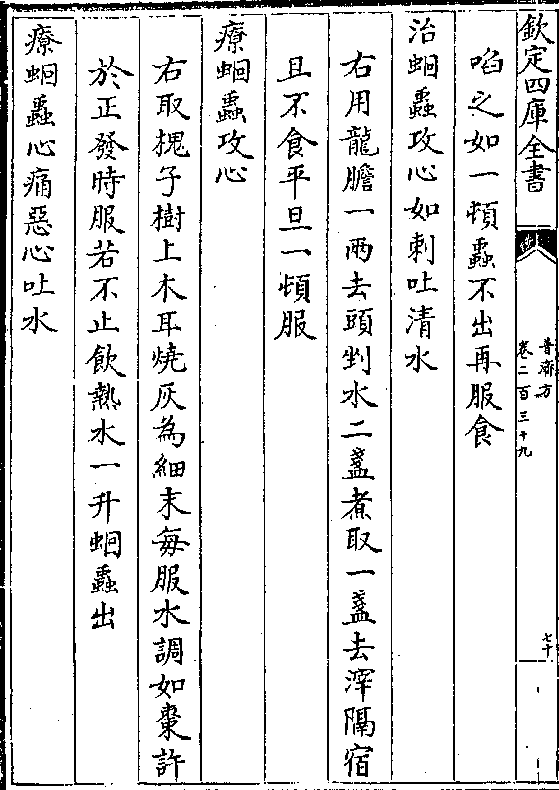 欽定四庫全書
普濟方
卷二百三十九
七十
啗之如一頓蟲不出再服食
治蛔蟲攻心如刺吐清水
右用龍膽一兩去頭剉水二盞煮取一盞去滓隔宿
且不食平旦一頓服
療蛔蟲攻心
右取槐子樹上木耳燒灰為細末每服水調如棗許
於正發時服若不止飲熱水一升蛔蟲出
療蛔蟲心痛惡心吐水